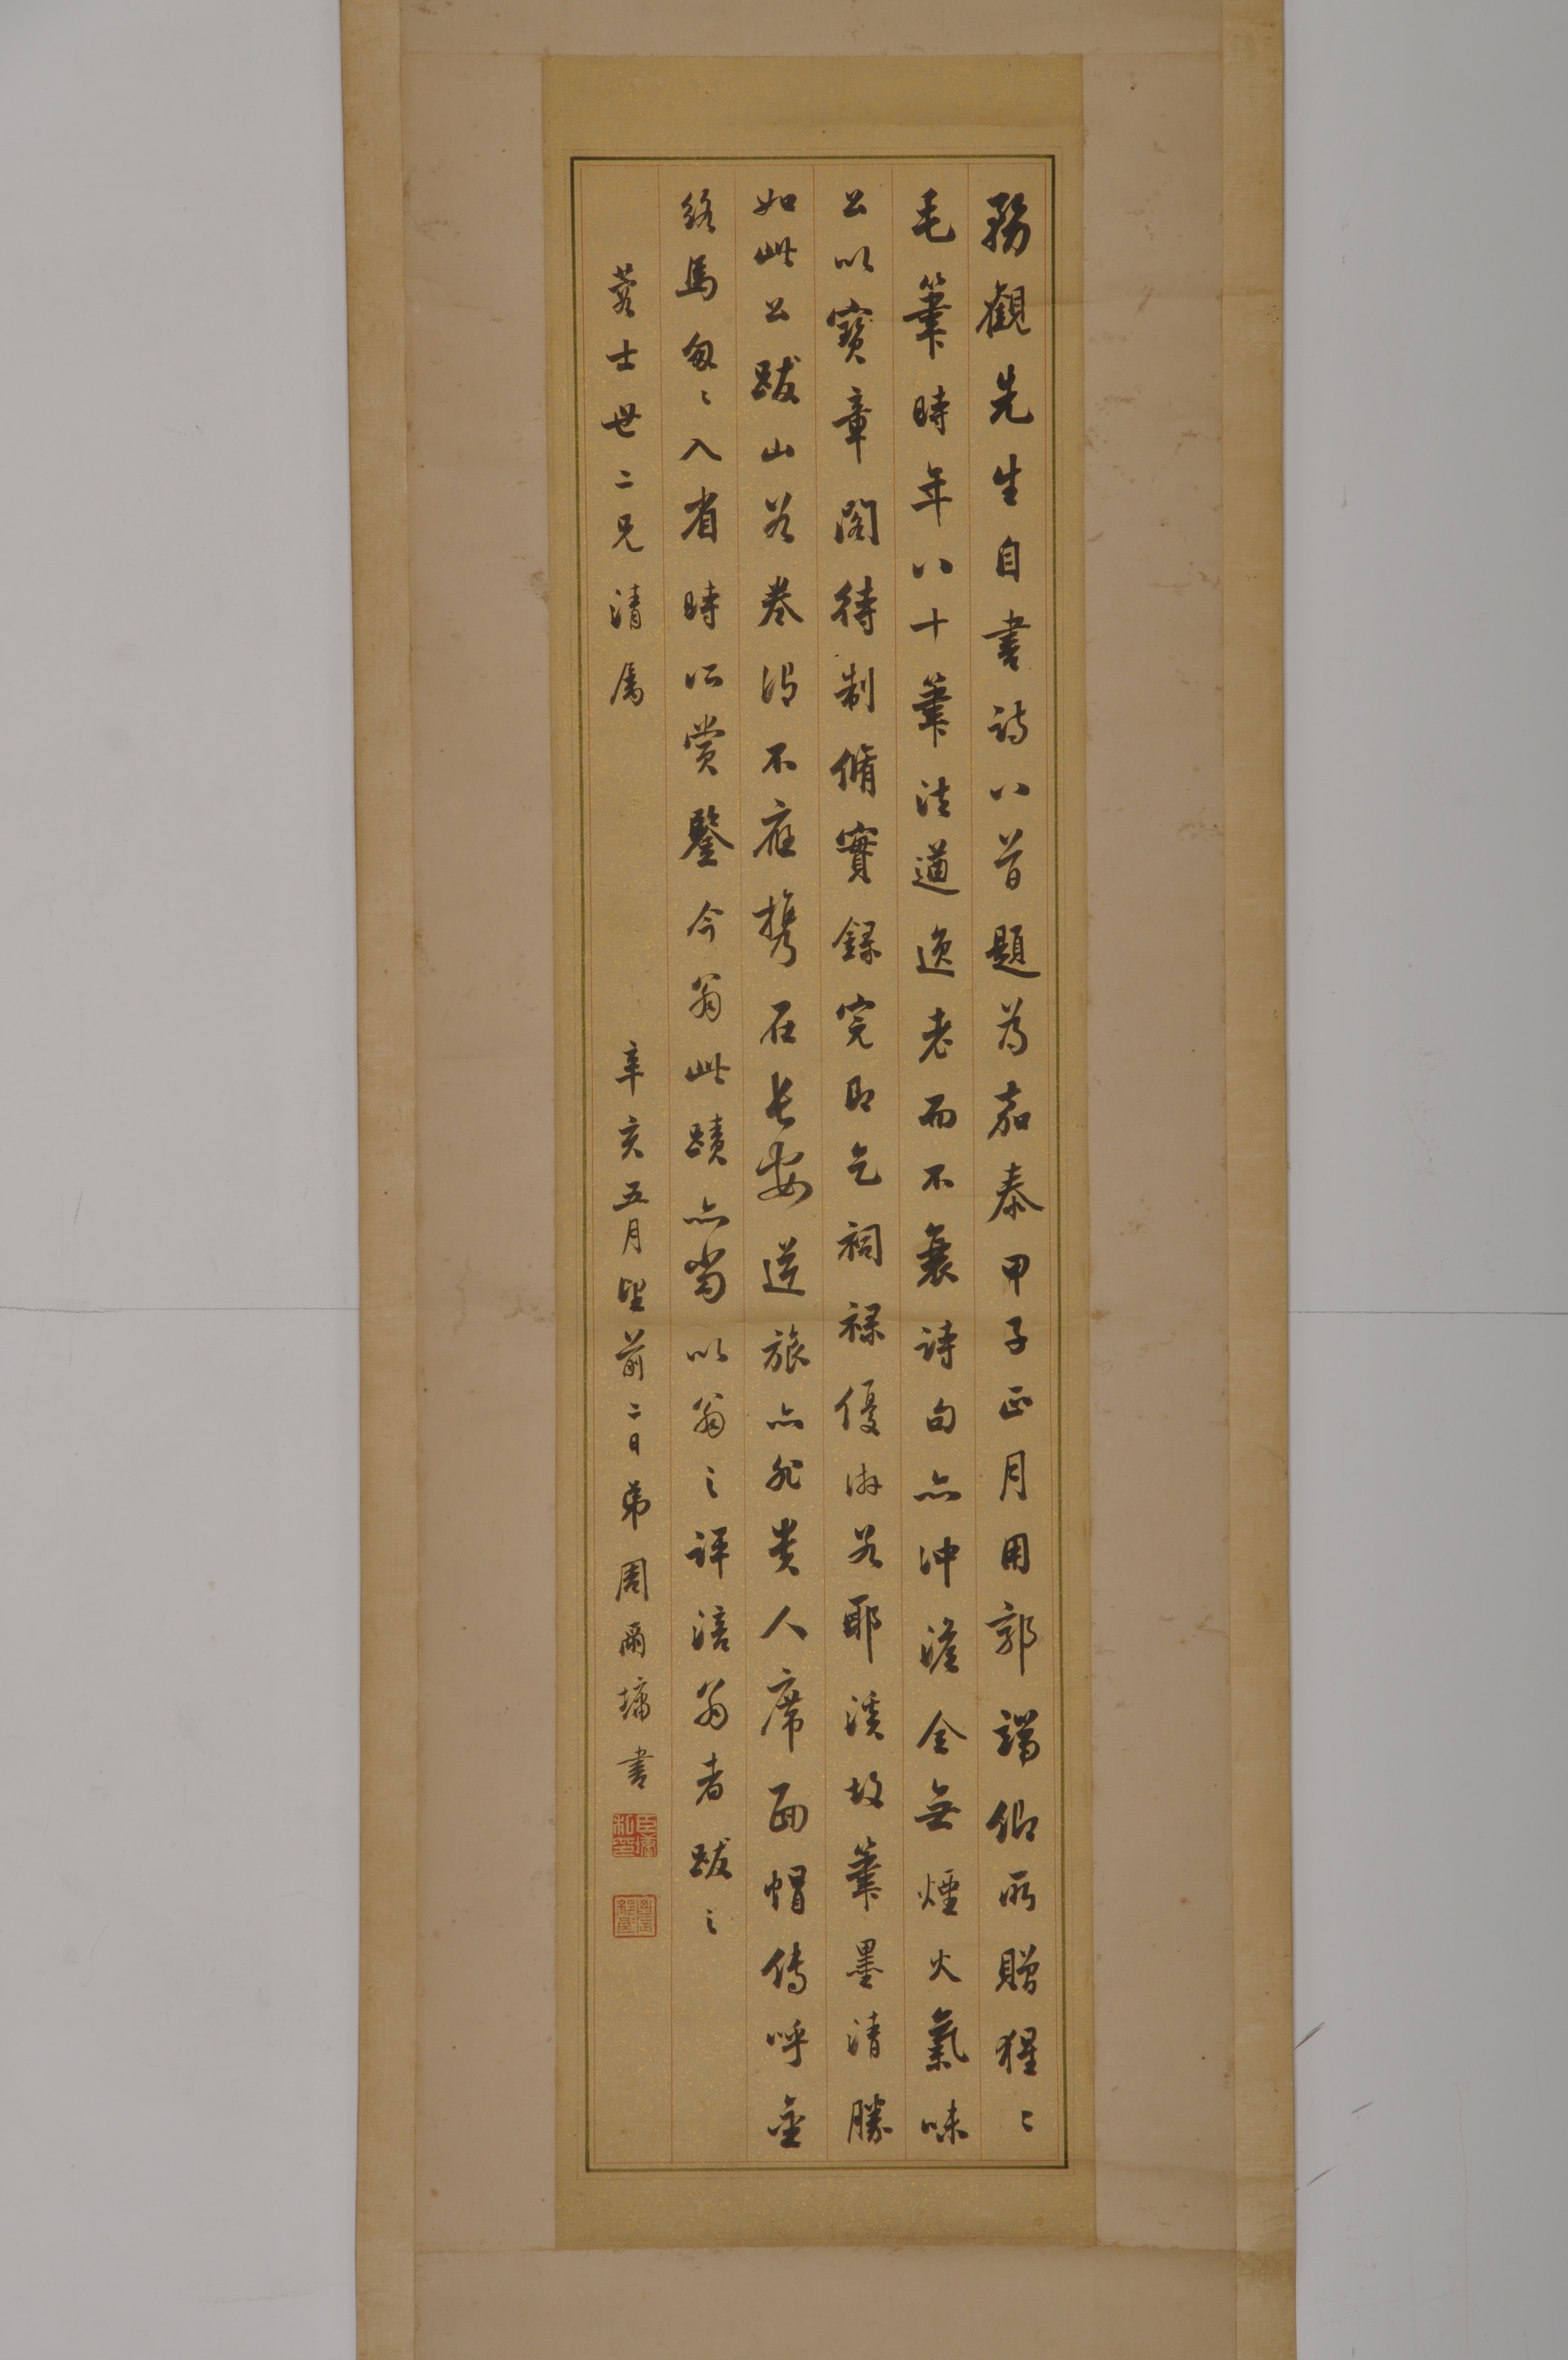 務觀先生自書詩八首題為嘉泰甲子正月用郭端卿所贈猩〻
毛筆時年八十筆法遒逸老而不衰詩句亦沖澹全無煙火氣味
公以寶章閣待制脩實錄完即乞祠祿優游若耶溪故筆墨清勝
如此公跋山谷卷謂不應攜在長安逆旅亦非貴人席面帽傳呼金
絡馬匆〻入省時所賞鑒今翁此蹟亦當以翁之評涪翁者跋之
士世二兄清屬
辛亥五月望前二日弟周爾墉書